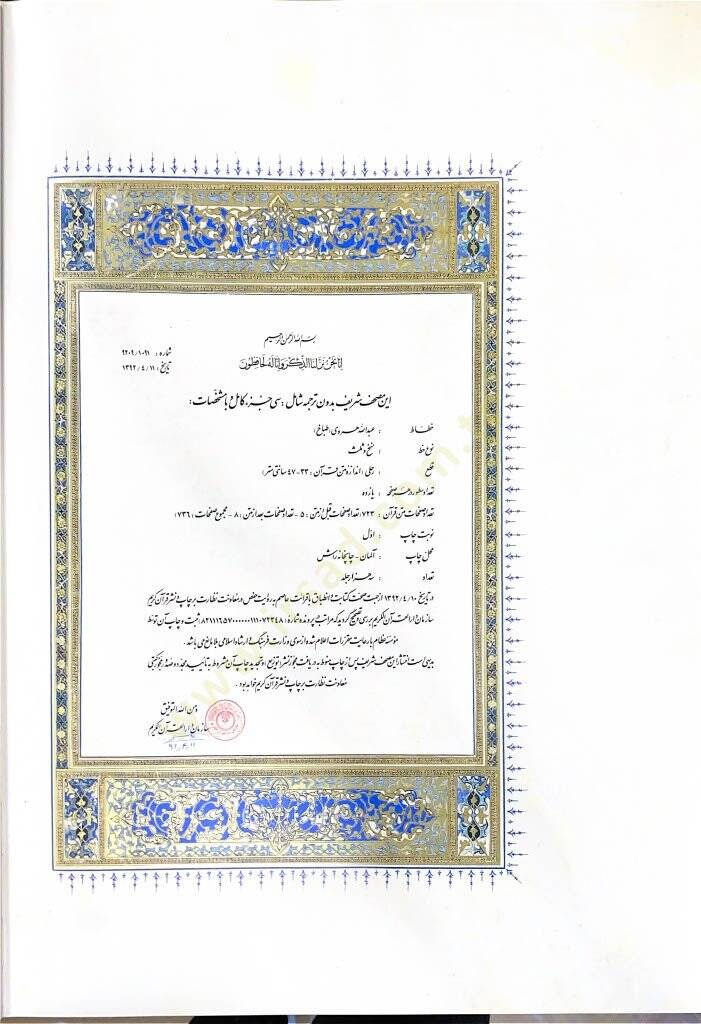 بسم الله الرحمن الرحیم
شماره : ۹۲۰۹/۱۰۹۱
انا نحن نزلنا الذکر و انا له لحافظون
تاریخ : ۱۳۹۲/۴/۱۱
این مصحف شریف بدون ترجمه شامل : سی جزء کامل و با مشخصات :
خطاط : عبدالله هروی (طباخ)
نوع خط : نسخ و ثلث
قطع : رحلی (اندازه متن قرآن : ۳۳-۴۷ سانتی متر)
تعداد سطور در هر صفحه : یازده
تعداد صفحات متن قرآن : ۷۲۳ (تعداد صفحات قبل از متن : ۵ - تعداد صفحات بعد از متن : ۸ - مجموع صفحات : ۷۳۶)
نوبت چاپ : اول
محل چاپ : آلمان - چاپخانه
تعداد : سه هزار جلد
در تاریخ ۱۳۹۲/۴/۱۰ از جهت صحت کتابت و انطباق با قرائت عاصم به روایت حفص در معاونت نظارت بر چاپ و نشر قرآن کریم
سازمان دارالقرآن الکریم بررسی و تصحیح گردید که مراتب در پرونده شماره : ثبت و چاپ آن توسط
مؤسسه با رعایت مقررات اعلام شده از سوی وزارت فرهنگ و ارشاد اسلامی بلامانع می باشد .
بدیهی است انتشار این مصحف شریف پس از چاپ منوط به دریافت مجوز نشر (توزیع) و تجدید چاپ آن مشروط به تأیید مجدد و صدور مجوز کتبی
معاونت نظارت بر چاپ و نشر قرآن کریم خواهد بود .
و من الله التوفیق
سازمان دارالقرآن الکریم
۹۲.۴.۱۱